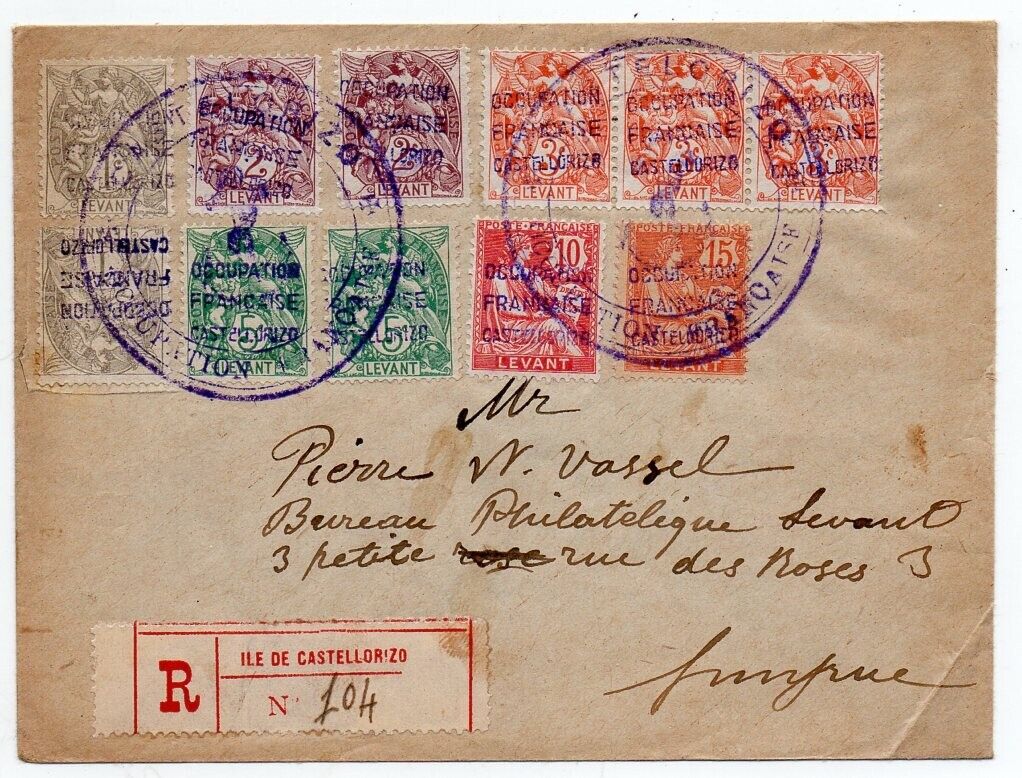 OCCUPATION
FRANÇAISE
CASTELLORIZO
1
OCCUPATION
FRANÇAISE
CASTELLORIZO
2
LEVANT
OCCUPATION
FRANÇAISE
CASTELLORIZO
2
LEVANT
OCCUPATION
FRANÇAISE
CASTELLORIZO
3
LEVANT
OCCUPATION
FRANÇAISE
CASTELLORIZO
3
LEVANT
OCCUPATION
FRANÇAISE
CASTELLORIZO
LEVANT
OCCUPATION
FRANÇAISE
CASTELLORIZO
OCCUPATION
FRANÇAISE
CASTELLORIZO
5
LEVANT
OCCUPATION
FRANÇAISE
CASTELLORIZO
5
LEVANT
POSTE FRANÇAISE
10
OCCUPATION
FRANÇAISE
CASTELLORIZO
LEVANT
POSTE FRANÇAISE
15
OCCUPATION
FRANÇAISE
CASTELLORIZO
LEVANT
OCCUPATION FRANÇAISE
Mr
Pierre N. Vassel
Bureau Philateligue Levant
3 petite rue des Roses 3
R
ILE DE CASTELLORIZO
N° 104